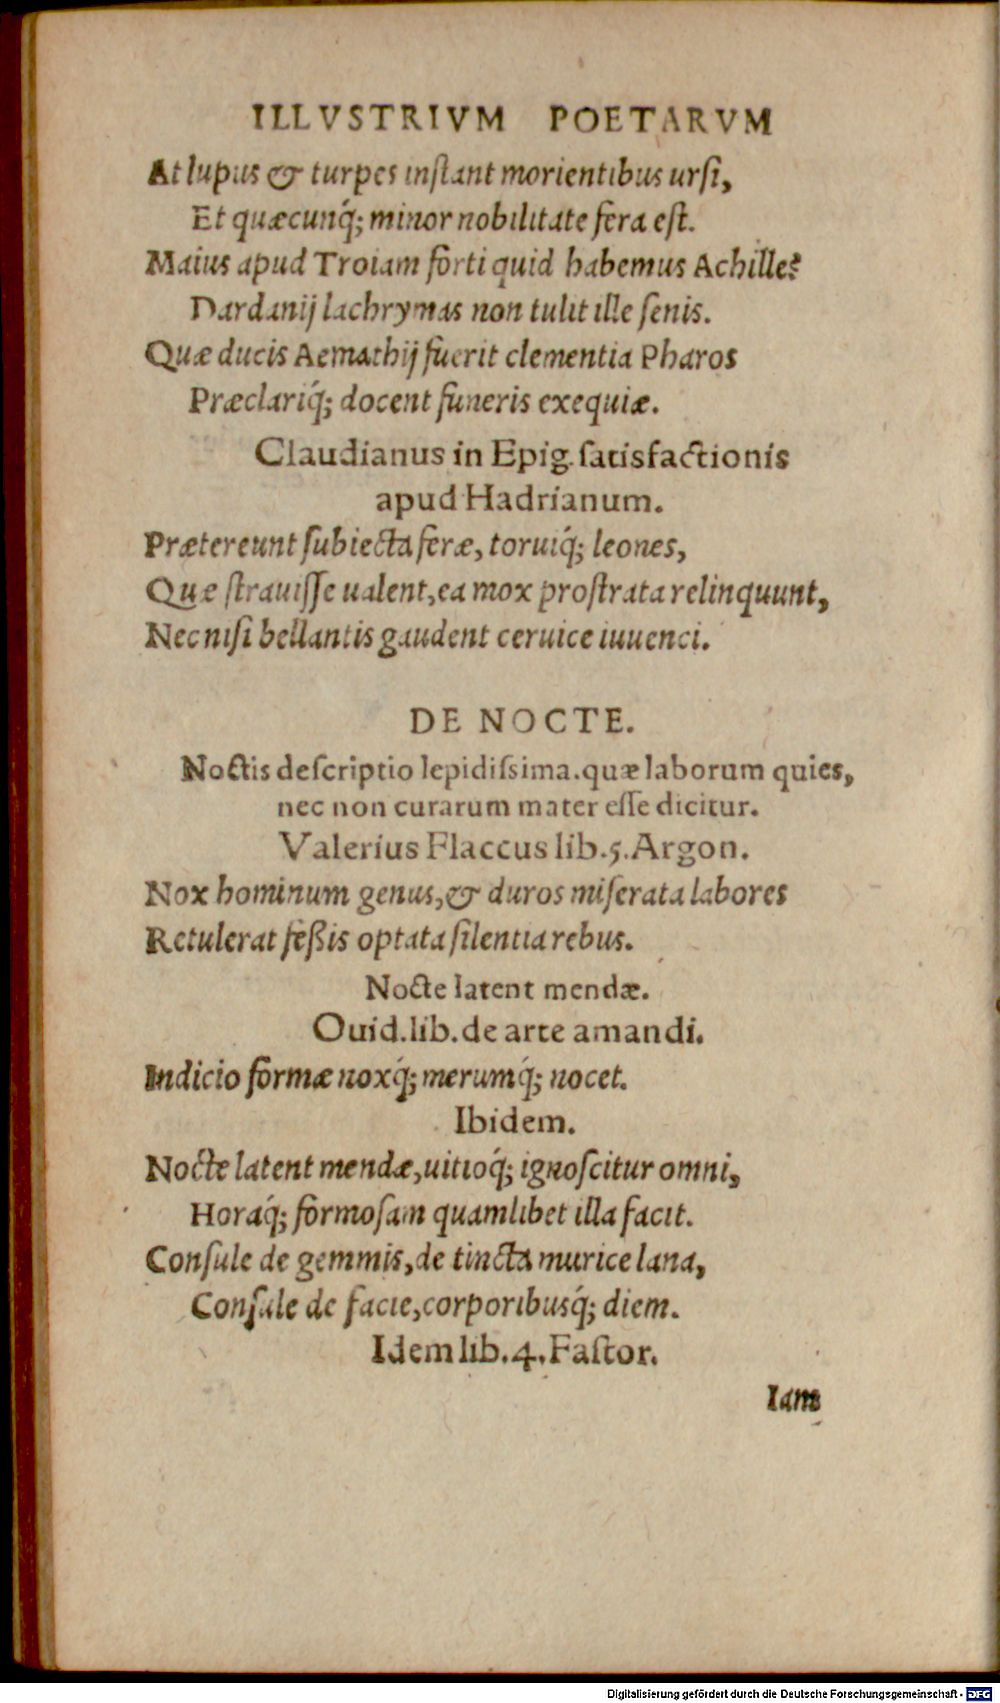 ILLVSTRIVM POETARVM
At lupus & turpes inſtant morientibus urſi,
Et quæcunq́; minor nobilitate fera eſt.
Maius apud Troiam forti quid habemus Achille?
Dardanij lachrymas non tulit ille ſenis.
Quæ ducis Aemathij fuerit clementia Pharos
Præclariq́; docent funeris exequiæ.
Claudianus in Epig. ſatisfactionis
apud Hadrianum.
Prætereunt ſubiecta feræ, toruiq́; leones,
Quæ ſtrauiſſe ualent, ea mox proſtrata relinquunt,
Nec niſi bellantis gaudent ceruice iuuenci.
DE NOCTE.
Noctis deſcriptio lepidiſsima. quæ laborum quies,
nec non curarum mater eſſe dicitur.
Valerius Flaccus lib. 5. Argon.
Nox hominum genus, & duros miſerata labores
Retulerat feßis optata ſilentia rebus.
Nocte latent mendæ.
Ouid. lib. de arte amandi.
Indicio formæ noxq́; merumq́; nocet.
Ibidem.
Nocte latent mendæ, uitioq́; ignoſcitur omni,
Horaq́; formoſam quamlibet illa facit.
Conſule de gemmis, de tincta murice lana,
Conſule de facie, corporibusq́; diem.
Idem lib. 4. Faſtor.
Iam
Digitalisierung gefördert durch die Deutsche Forschungsgemeinschaft - DFG